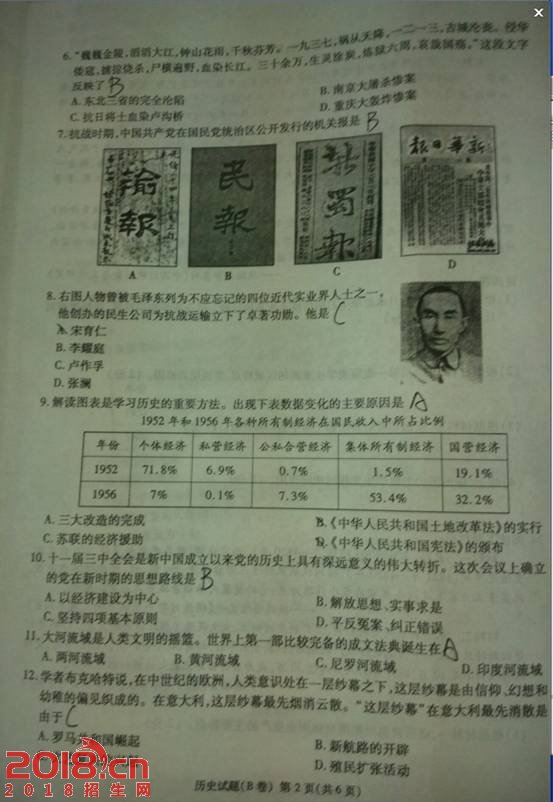 6."巍巍金陵,滔滔大江,钟山花雨,千秋芬芳。一九三七,祸从天降,一二一三,古城沦丧。侵华
倭寇,掳掠烧杀,尸横遍野,血染长江。三十余万,生灵涂炭,炼狱六周,哀鸿国殇。"这段文字
反映了 B
A.东北三省的完全沦陷 B.南京大屠杀惨案
C.抗日将士血染卢沟桥 D.重庆大轰炸惨案
7.抗战时期,中国共产党在国民党统治区公开发行的机关报是 B
渝報
民報
蜀報
新華日報
A B C D
8.右图人物曾被毛泽东列为不应忘记的四位近代实业界人士之一,
他创办的民生公司为抗战运输立下了卓著功勋。他是 C
A.宋育仁
B.李耀庭
C.卢作孚
D.张澜
9.解读图表是学习历史的重要方法。出现下表数据变化的主要原因是 A
1952年和1956年各种所有制经济在国民收入中所占比例
年份 个体经济 私营经济 公私合营经济 集体所有制经济 国营经济
1952 71.8% 6.9% 0.7% 1.5% 19.1%
1956 7% 0.1% 7.3% 53.4% 32.2%
A.三大改造的完成 B.《中华人民共和国土地改革法》的实行
C.苏联的经济援助 D.《中华人民共和国宪法》的颁布
10.十一届三中全会是新中国成立以来党的历史上具有深远意义的伟大转折。这次会议上确立
的党在新时期的思想路线是 B
A.以经济建设为中心 B.解放思想、实事求是
C.坚持四项基本原则 D.平反冤案、纠正错误
11.大河流域是人类文明的摇篮。世界上第一部比较完备的成文法典诞生在 A
A.两河流域 B.黄河流域 C.尼罗河流域 D.印度河流域
12.学者布克哈特说,在中世纪的欧洲,人类意识处在一层纱幕之下,这层纱幕是由信仰、幻想和
幼稚的偏见织成的。在意大利,这层纱幕最先烟消云散。"这层纱幕"在意大利最先消散是
由于 C
A.罗马共和国崛起 B.新航路的开辟
D.殖民扩张活动
2018.cn
2018招生网
历史试题(B卷) 第2页(共6页)